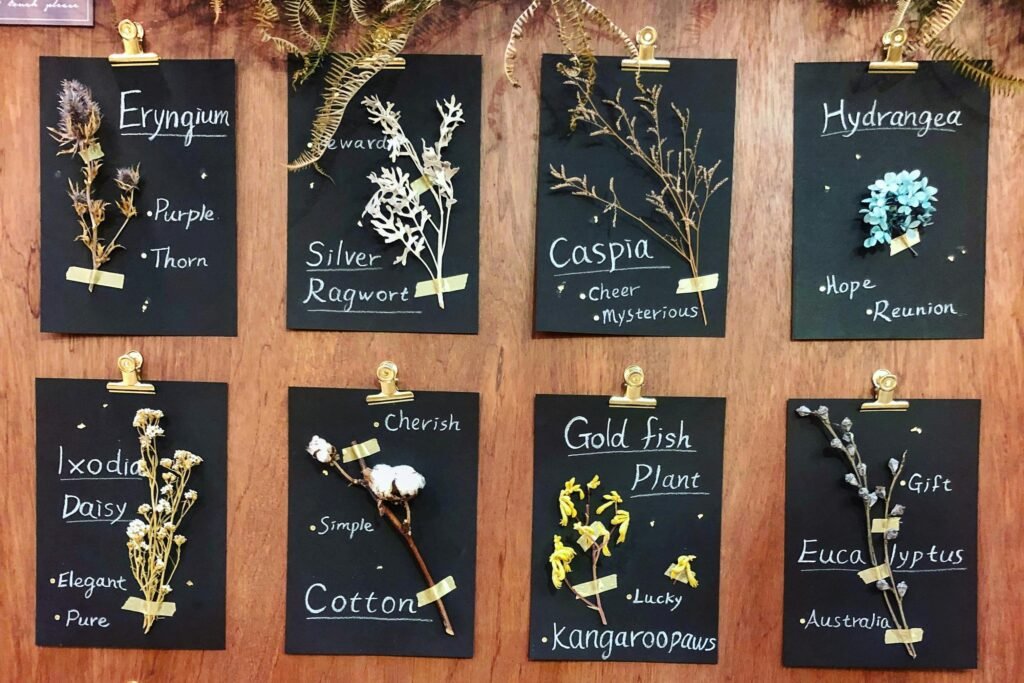 touch please
Eryngium
•Purple
•Thorn
Silver
Ragwort
Caspia
•Cheer
•Mysterious
Hydrangea
•Hope
•Reunion
Ixodia
Daisy
•Elegant
•Pure
•Cherish
•Simple
Cotton
Gold fish
Plant
•Lucky
•Kangaroopaws
•Gift
Eucalyptus
•Australia